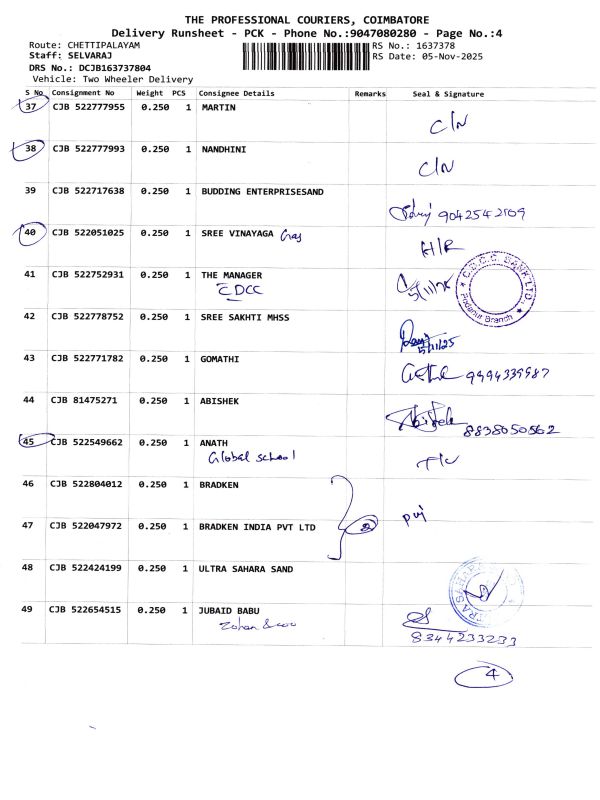 THE PROFESSIONAL COURIERS, COIMBATORE
Delivery Runsheet - PCK - Phone No.:9047080280 - Page No.:4
Route: CHETTIPALAYAM RS No.: 1637378
Staff: SELVARAJ RS Date: 05-Nov-2025
DRS No.: DCJB163737804
Vehicle: Two Wheeler Delivery
S No Consignment No Weight PCS Consignee Details Remarks Seal & Signature
37 CJB 522777955 0.250 1 MARTIN
C/N
38 CJB 522777993 0.250 1 NANDHINI
C/N
39 CJB 522717638 0.250 1 BUDDING ENTERPRISESAND
9042542109
40 CJB 522051025 0.250 1 SREE VINAYAGA Gas
H/R
41 CJB 522752931 0.250 1 THE MANAGER
CDCC
5/11/25
C.D.C.C. BANK LTD
Podanur Branch
42 CJB 522778752 0.250 1 SREE SAKHTI MHSS
5/11/25
43 CJB 522771782 0.250 1 GOMATHI
9994339987
44 CJB 81475271 0.250 1 ABISHEK
Abishek 8838050562
45 CJB 522549662 0.250 1 ANATH
Global school
46 CJB 522804012 0.250 1 BRADKEN
47 CJB 522047972 0.250 1 BRADKEN INDIA PVT LTD
48 CJB 522424199 0.250 1 ULTRA SAHARA SAND
49 CJB 522654515 0.250 1 JUBAID BABU
8344233233
4